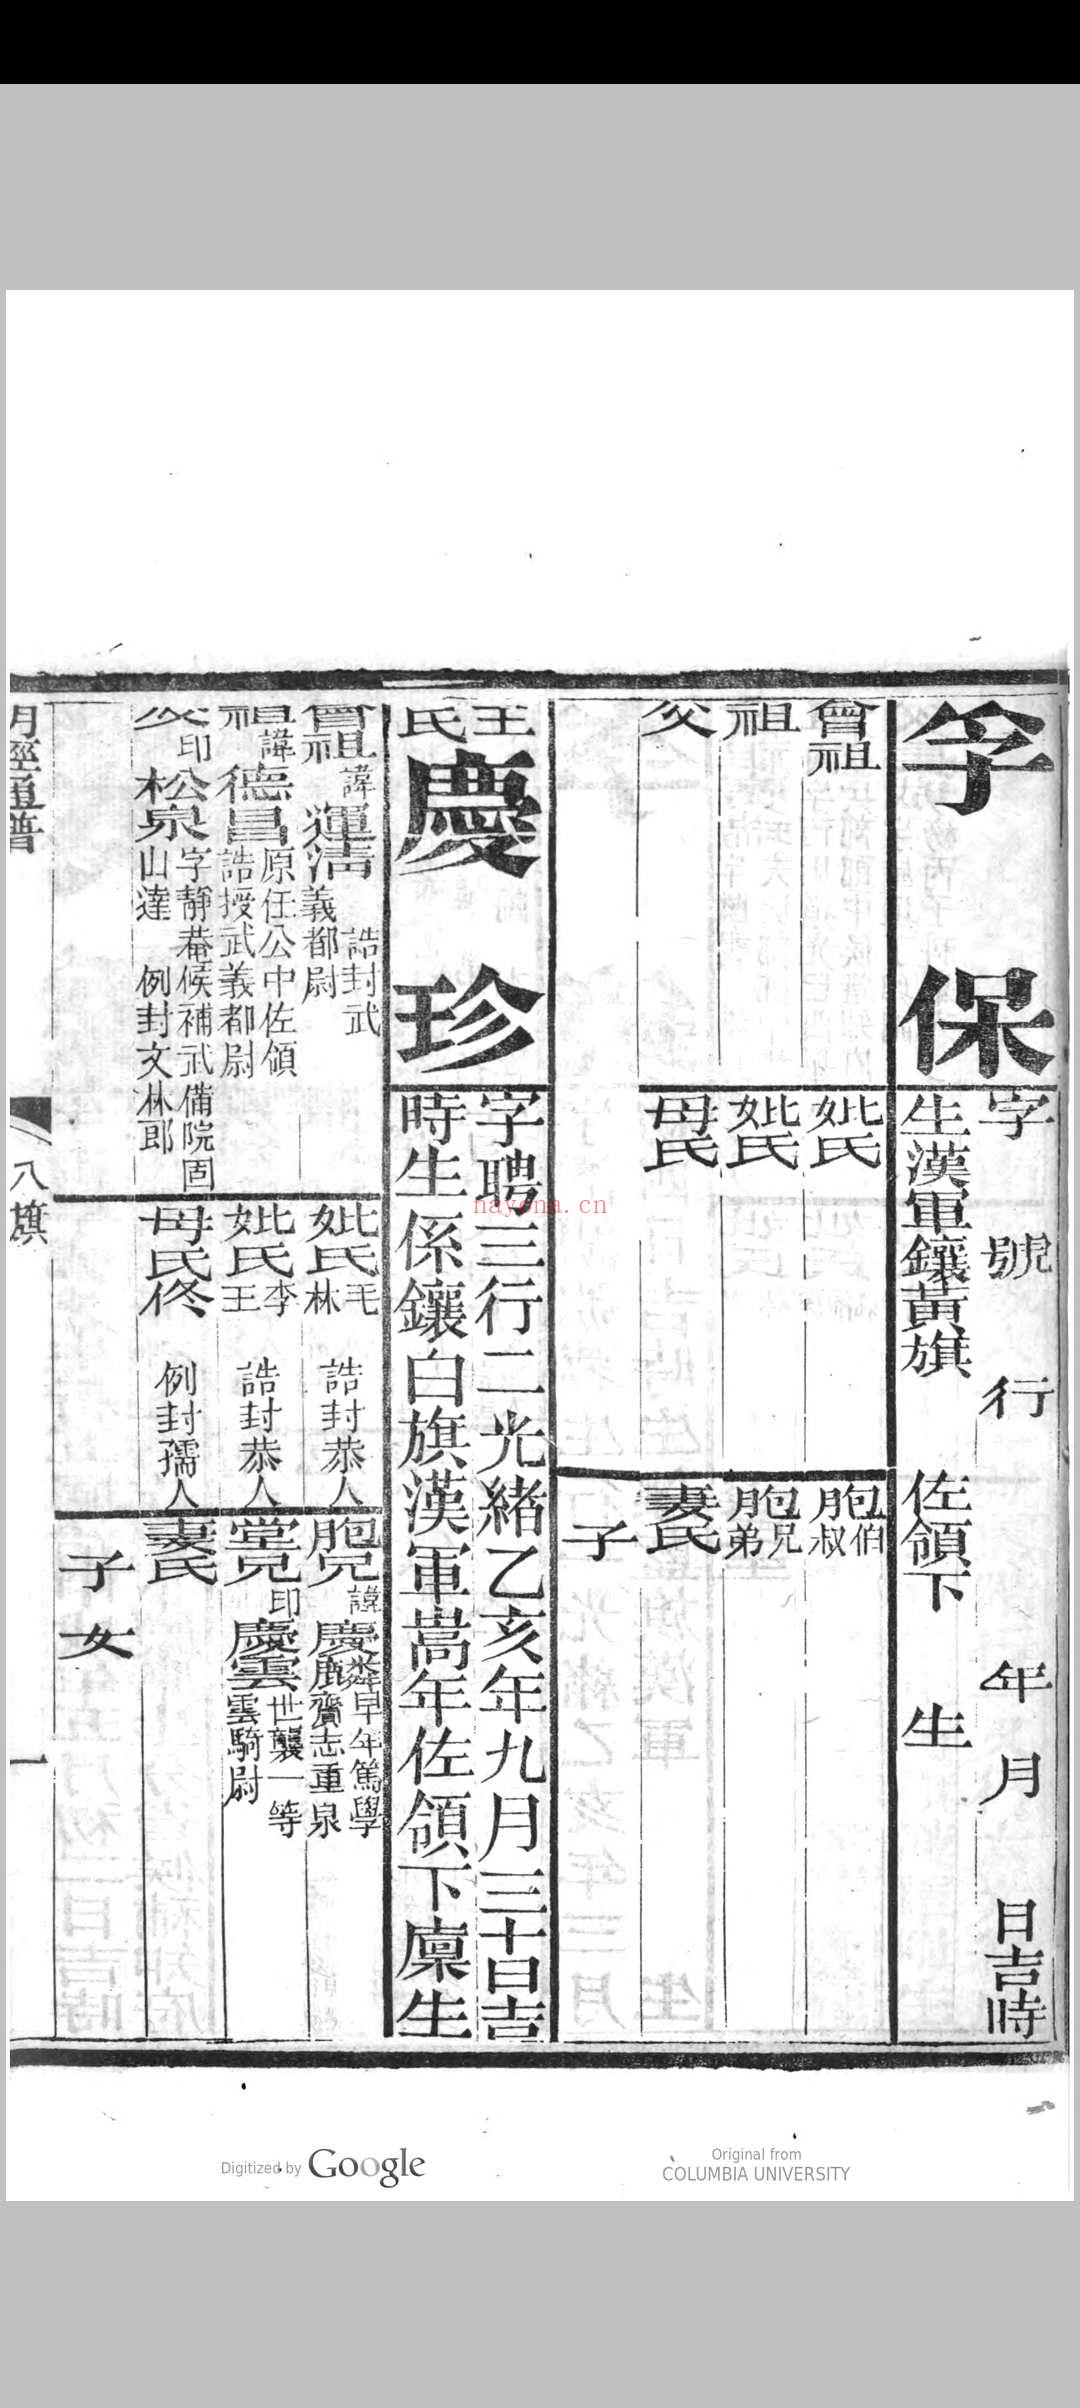 孚保
字 號 行 年 月 日吉時
生漢軍鑲黃旗 佐領下 生
曾祖
祖
父
妣氏
妣氏
母氏
胞伯
叔
胞兄
弟
妻氏
子
王
氏
慶珍
字聘三行二光緒乙亥年九月三十日吉
時生係鑲白旗漢軍嵩年佐領下廩生
曾祖
諱
運清
誥封武
義都尉
祖
諱
德昌
原任公中佐領
誥授武義都尉
父
印
松泉
字靜菴候補武備院固
山達 例封文林郎
妣氏
毛
林
誥封恭人
妣氏
李
王
誥封恭人
母氏佟
例封孺人
胞兄
諱
慶麟
早年篤學
齎志重泉
堂兄
印
慶雲
世襲一等
雲騎尉
妻氏
子
女
明經通譜
八旗
一
nayona.cn
Digitized by Google
Original from
COLUMBIA UNIVERSITY